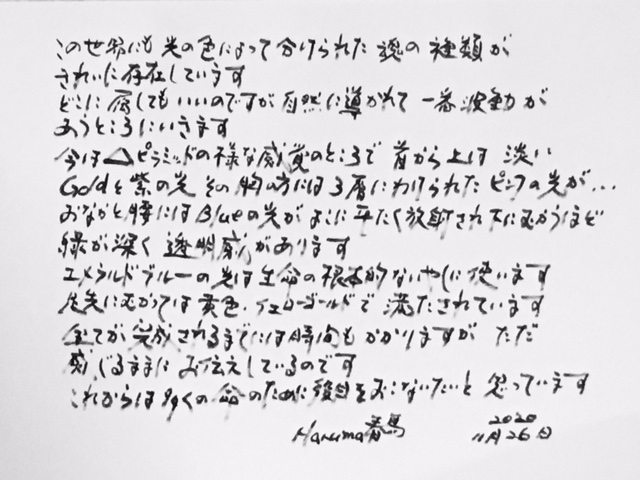 この世界にも 光の色によって 分けられた 魂の 種類が
きれいに存在しています
どこに 属してもいいのですが 自然に導かれて 一番 波動が
あうところにいきます
今は△ピラミッドの様な感覚のところで 首から上は 淡い
Goldと紫の光 その胸の方には3層にわけられた ピンクの光が...
おなかと腰には Blueの光がよこに平たく放射され下にむかうほど
緑が深く 透明感があります
エメラルドブルーの光は生命の根本的ないやしに使います
足先にむかっては黄色.イエローゴールドで 満たされています
全てが完成されるまでには時間もかかりますが ただ
感じるままに お伝えしているのです
これからは多くの 命のために 役目をおこないたいと 思っています
Haruma春馬 2020
11月26日